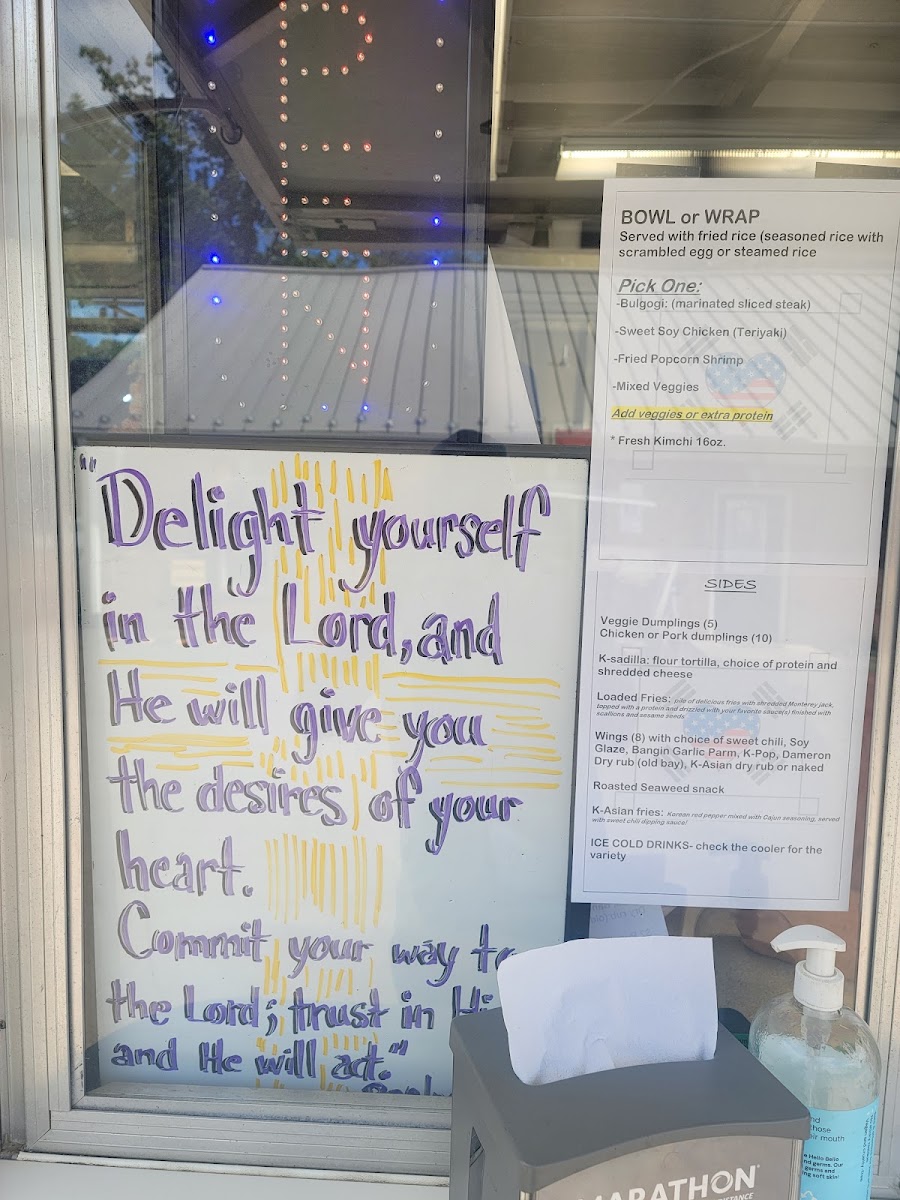 PEN
"Delight yourself
in the Lord, and
He will give you
the desires of your
heart.
Commit your way to
the Lord; trust in Hi
and He will act."
BOWL or WRAP
Served with fried rice (seasoned rice with
scrambled egg or steamed rice
Pick One:
-Bulgogi: (marinated sliced steak)
-Sweet Soy Chicken (Teriyaki)
-Fried Popcorn Shrimp
-Mixed Veggies
Add veggies or extra protein
* Fresh Kimchi 16oz.
SIDES
Veggie Dumplings (5)
Chicken or Pork dumplings (10)
K-sadilla: flour tortilla, choice of protein and
shredded cheese
Loaded Fries: pile of delicious fries with shredded Monterey jack,
topped with a protein and drizzled with your favorite sauce(s) finished with
scallions and sesame seeds
Wings (8) with choice of sweet chili, Soy
Glaze, Bangin Garlic Parm, K-Pop, Dameron
Dry rub (old bay), K-Asian dry rub or naked
Roasted Seaweed snack
K-Asian fries: Korean red pepper mixed with Cajun seasoning, served
with sweet chili dipping sauce!
ICE COLD DRINKS- check the cooler for the
variety
MARATHON